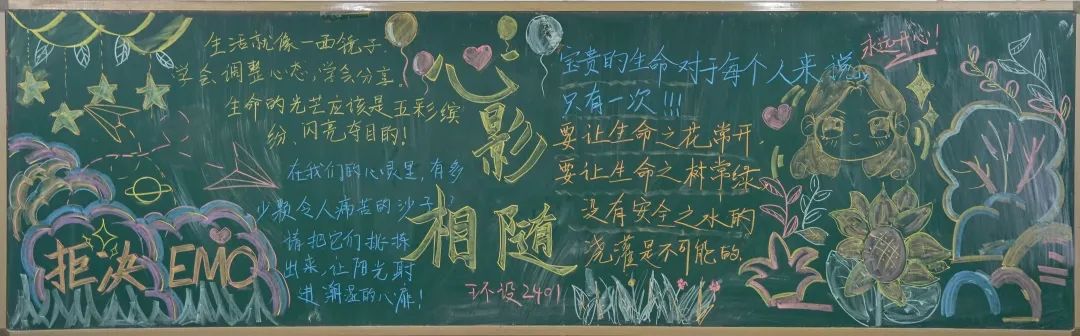 生活就像一面镜子
学会调整心态,学会分享。
生命的光芒应该是五彩缤
纷 闪亮夺目的!
在我们的心灵里,有多
少颗令人痛苦的沙子?
请把它们挑拣
出来,让阳光射
进潮湿的心扉!
拒决 EMO
心影
相随
环设2401
宝贵的生命对于每个人来说,
只有一次!!!
要让生命之花常开,
要让生命之树常绿
没有安全之水的
浇灌是不可能的.
永远开心!